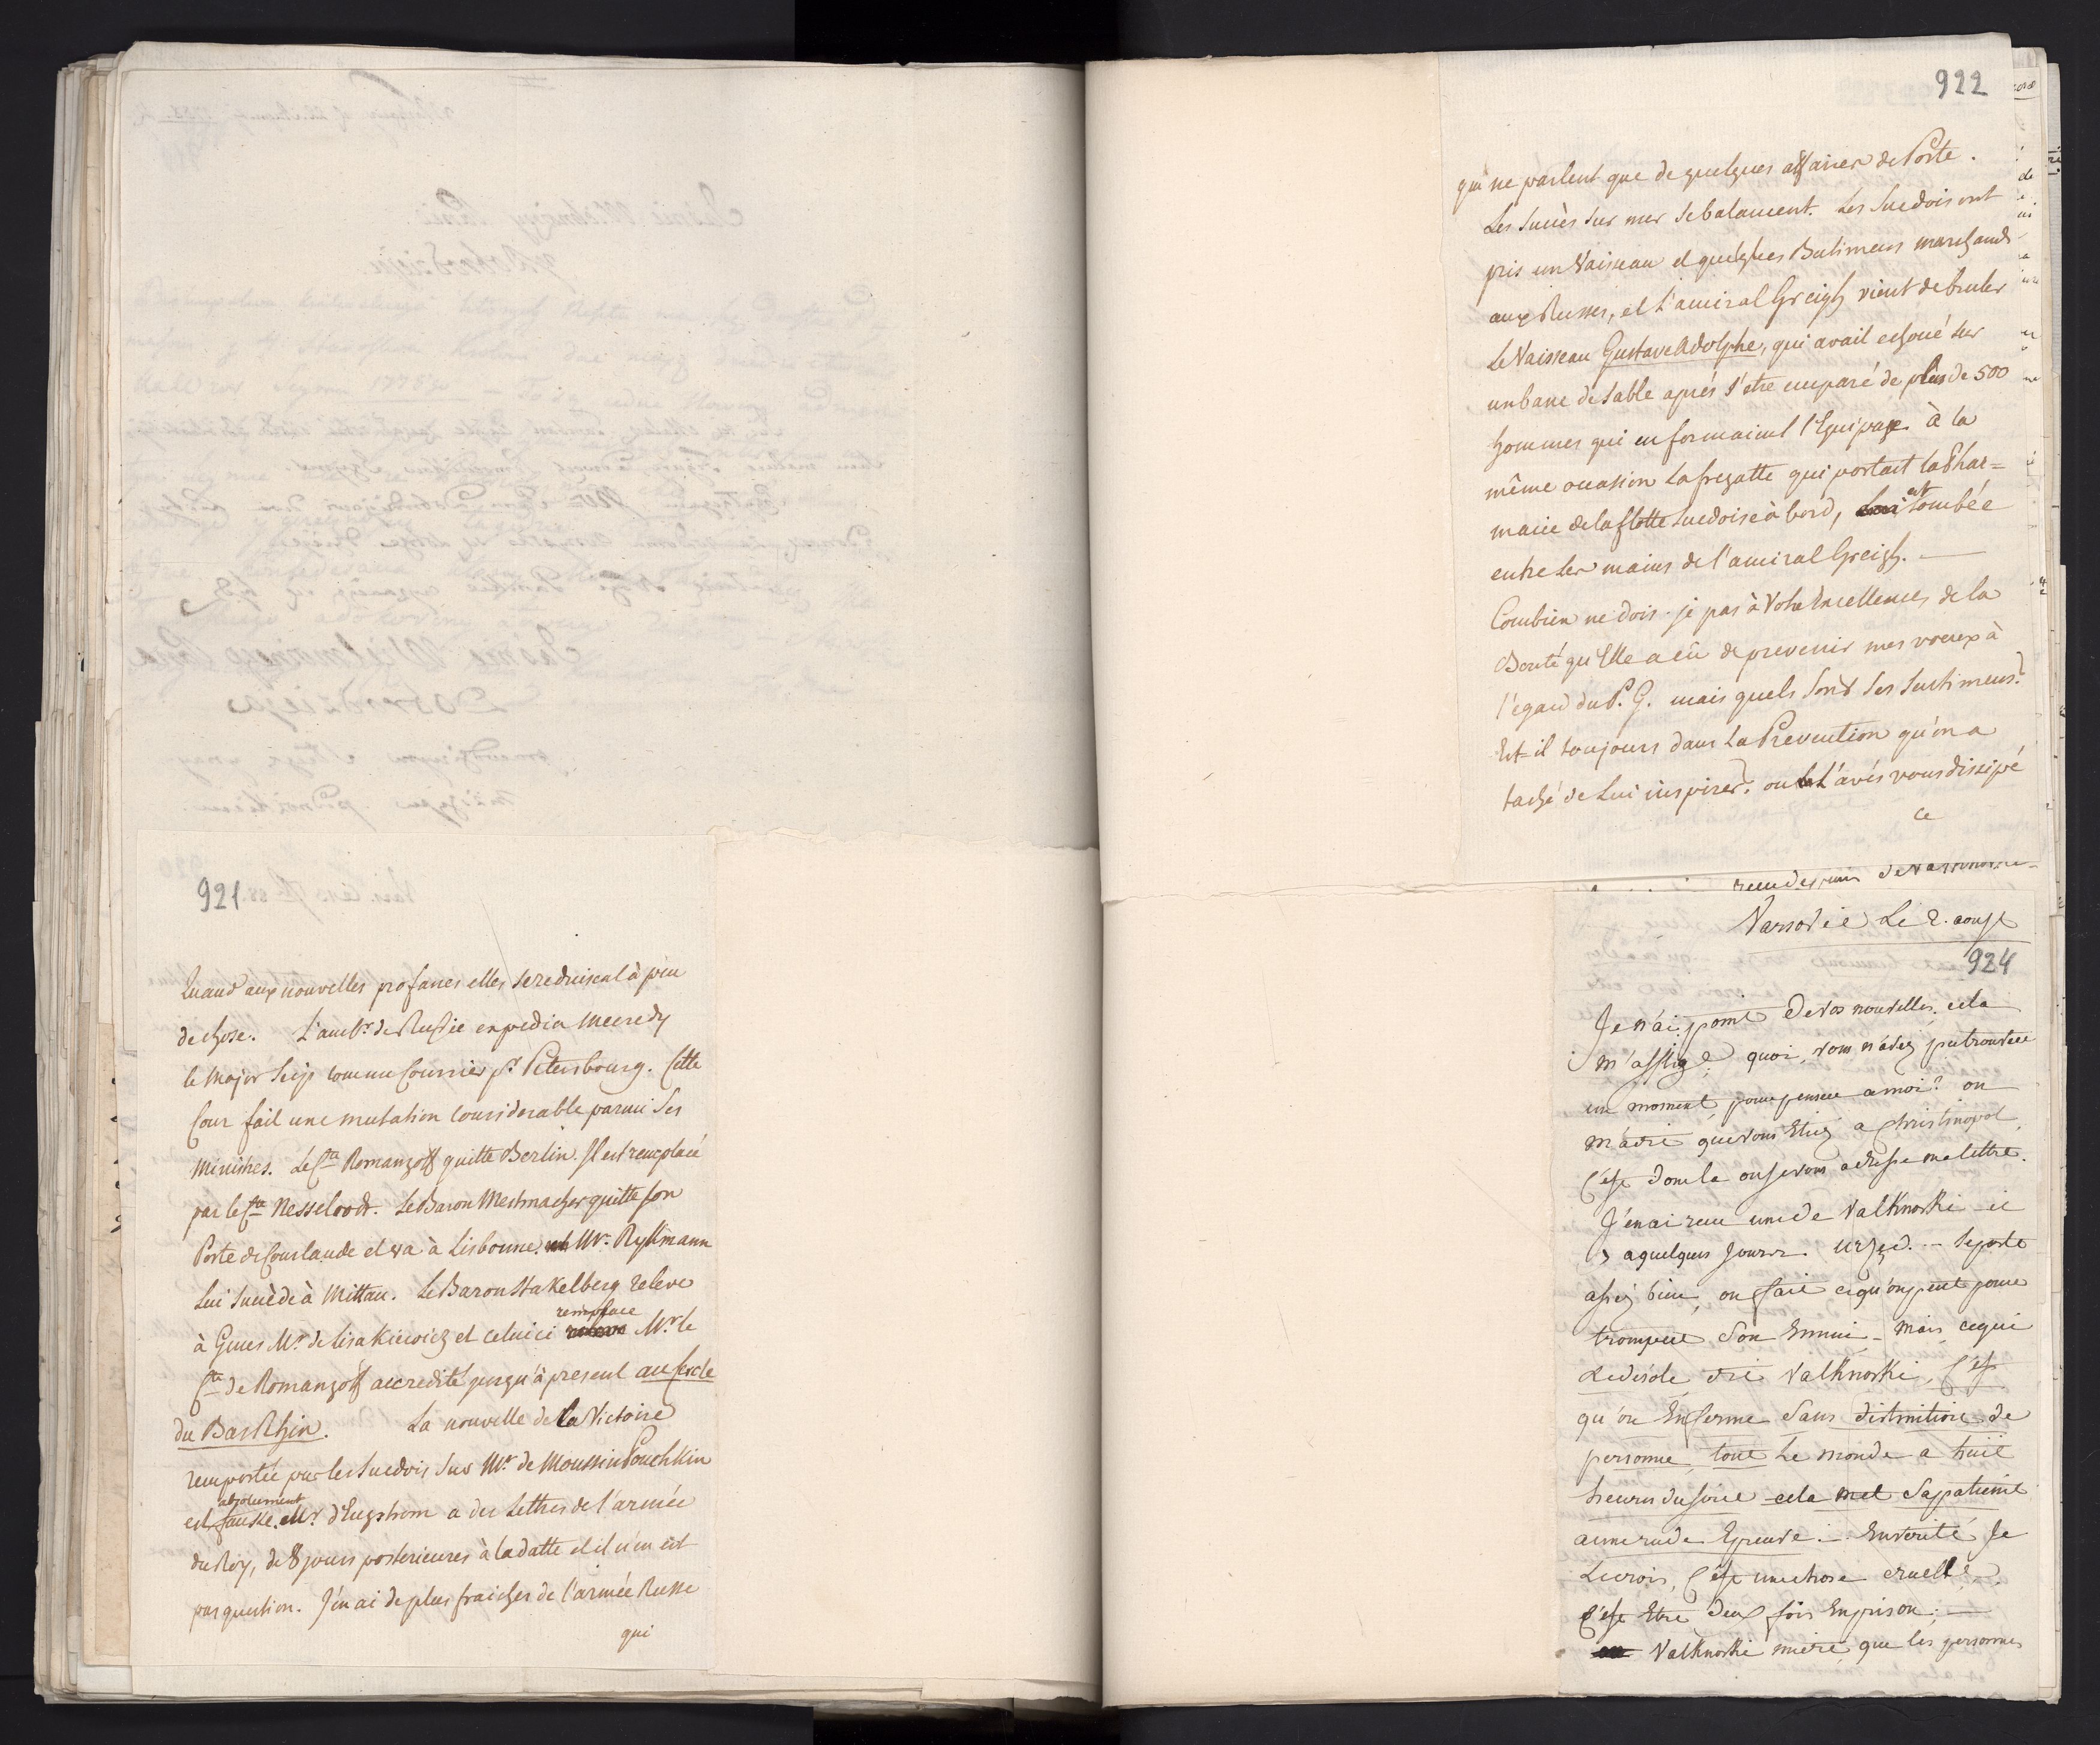 921
Quand aux nouvelles profanes elles sereduiseal à peu
de chose. L'amb.r de Russie expedia Mecredy
le Major Seip comme Courrier p.r Petersbourg. Cette
Cour fait une mutation considerable parmi Ses
Ministres. Le Cte Romanzoff quitte Berlin. Il est remplacé
par le Cte Nesselrodt. Le Baron Mestmacher quitte son
Poste de Courlande et va à Lisbonne. Mr. Rykmann
Lui succède à Mittau. Le Baron Stakelberg releve
remplace
à Genes Mr. de Lisakiewicz et celuici Mr. le
Cte de Romanzoff accredité jusqu'à present au Cercle
du Bas Rhin. La nouvelle de la Victoire
remportée par les Suedois sur Mr. de Moussin Pouchkin
absolument
est fausse. Mr. d'Engstrom a des Lettres de l'armée
du Roy, de 8 jours posterieures à la datte et il n'en est
pas question. J'en ai de plus fraiches de l'armée Russe
qui
922
qui ne parlent que de quelques affaires de Poste.
Les Succès sur mer se balancent. Les Suedois ont
pris un Vaisseau et quelques Batimens marchands
aux Russes, et L'amiral Greigh vient de bruler
Le Vaisseau Gustave Adolphe, qui avait echoué sur
un banc de sable après s'etre emparé de plus de 500
hommes qui en formaient l'Equipage. à la
même occasion La fregatte qui portait la Phar=
macie de la flotte Suedoise à bord, est tombée
entre Les mains de l'amiral Greigh. —
Combien ne dois-je pas à Votre Excellence, de la
Bonté qu'Elle a eü de prevenir mes voeux à
l'egard du P. G. mais quels sont Ses Sentimens?
Est-il toujours dans La Prevention qu'on a
taché de Lui inspirer? ou L'avés vous dissipé
ce
Varsovie Le 2. aoust
924
Je n'ai point de vos nouvelles, cela
m'afflige; quoi, vous n'avez pu trouver
un moment pour penser a moi? on
m'a dit que vous Etiez a Christinopol,
C'est donc la ou je vous adresse ma lettre.
J'en ai recu une de Valknoski ic
a quelques Jours. — se porte
assez bien, on fait ce qu'on peut pour
tromper son Ennui — mais ce qui
Le desole dit Valknoski, C'est
qu'on Enferme Sans distinction de
personne tout Le monde a huit
heures du soir cela met Sa patience
a une rude Epreuve. — En verité Je
Le crois, C'est une chose cruelle,
C'est Etre deux fois En prison; —
Valknoski que les personnes